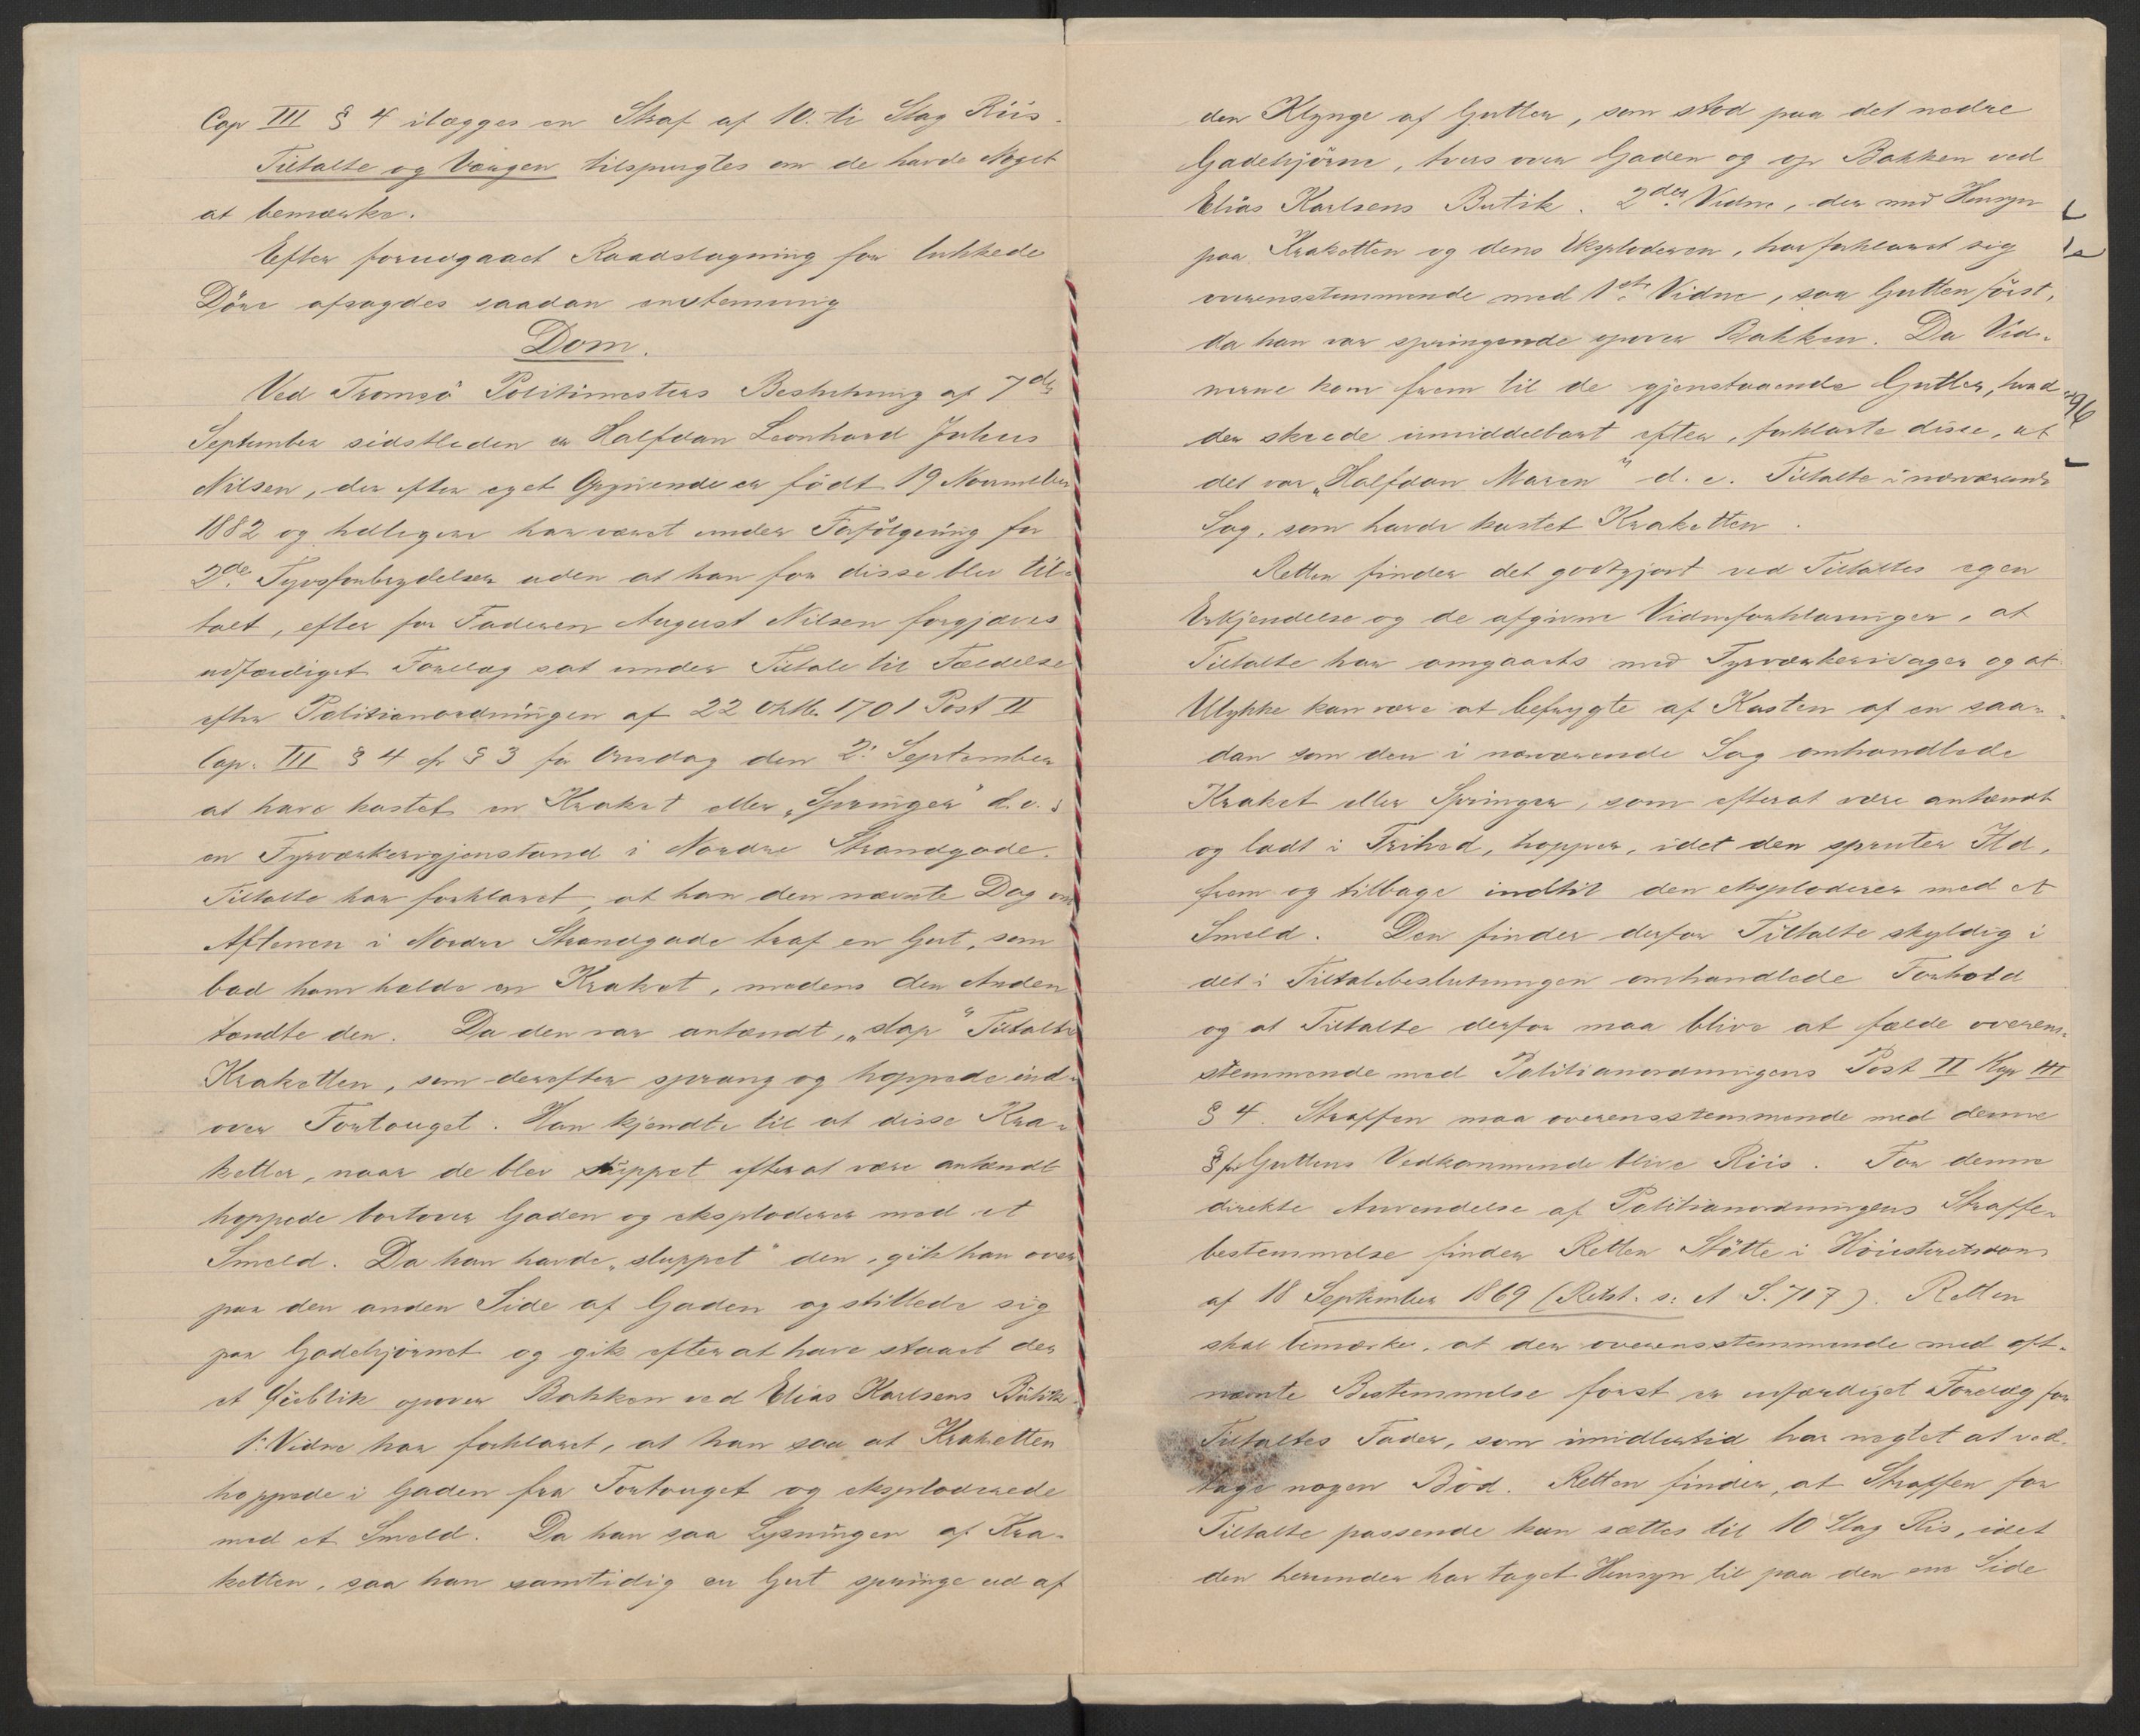 Cap III § 4 ilægges en Straf af 10. ti Slag Riis.
Tiltalte og Værgen tilspurgtes om de havde Noget
at bemærke.
Efter forudgaaet Raadslagning for lukkede
Døre afsagdes saadan enstemmig
Dom.
Ved Tromsø Politimesters Beslutning af 7de
September sidstleden er Halfdan Leonhard Julius
Nilsen, der efter eget Opgivende er født 19 November
1882 og tidligere har været under Forfølgning for
2de Tyvsforbrydelser uden at han for disse blev til-
talt, efter for Faderen August Nilsen forgjæves
udfærdiget Forelæg sat under Tiltale til Fældelse
efter Politianordningen af 22 Oktbr. 1701 Post II
Cap. III § 4 cfr § 3 for Onsdag den 2. September
at have kastet en Kraket eller „Springer" d. v. s
en Fyrværkerigjenstand i Nordre Strandgade.
Tiltalte har forklaret, at han den nævnte Dag om
Aftenen i Nordre Strandgade traf en Gut, som
bad ham holde en Kraket, medens den Anden
tændte den. Da den var antændt, „slap" Tiltalte
Kraketten, som derefter sprang og hoppede ind-
over Fortouget. Han kjendte til at disse Kra-
ketter, naar de blev sluppet efterat være antændt
hoppede bortover Gaden og eksploderer med et
Smeld. Da han havde „sluppet" den, gik han over
paa den anden Side af Gaden og stillede sig
paa Gadehjørnet og gik efter at have staaet der
et Øieblik opover Bakken ved Elias Karlsens Butik.
1. Vidne har forklaret, at han saa at Kraketten
hoppede i Gaden fra Fortouget og eksploderede
med et Smeld. Da han saa Lysningen af Kra-
ketten, saa han samtidig en Gut springe ud af
den Klynge af Gutter, som stod paa det nedre
Gadehjørne, tvers over Gaden og op Bakken ved
Elias Karlsens Butik. 2det Vidne, der med Hensyn
paa Kraketten og dens Eksploderen, har forklaret sig
overensstemmende med 1ste Vidne, saa Gutten først,
da han var springende opover Bakken. Da Vid-
nerne kom frem til de gjenstaaende Gutter, hvad
der skeede umiddelbart efter, forklarte disse, at
det var „Halfdan Maren" d. e. Tiltalte i nærværende
Sag, som havde kastet Kraketten.
Retten finder det godtgjort ved Tiltaltes egen
Erkjendelse og de afgivne Vidneforklaringer, at
Tiltalte har omgaaets med Fyrværkerisager og at
Ulykke kan være at befrygte af Kasten af en saa-
dan som den i nærværende Sag omhandlede
Kraket eller Springer, som efterat være antændt
og ladt i Frihed, hopper, idet den spruter Ild,
frem og tilbage indtil den eksploderer med et
Smeld. Den finder derfor Tiltalte skyldig i
det i Tiltalebeslutningen omhandlede Forhold
og at Tiltalte derfor maa blive at fælde overens-
stemmende med Politianordningens Post II Kap III
§ 4. Straffen maa overensstemmende med denne
§ for Guttens Vedkommende blive Riis. For denne
direkte Anvendelse af Politianordningens Straffe-
bestemmelse finder Retten Støtte i Høiesteretsdom
af 18 September 1869 (Retst. s: A S. 717). Retten
skal bemærke, at der overensstemmende med oft-
nævnte Bestemmelse først er udfærdiget Forelæg for
Tiltaltes Fader, som imidlertid har negtet at ved-
tage nogen Bød. Retten finder, at Straffen for
Tiltalte passende kan sættes til 10 Slag Ris, idet
den herunder har taget Hensyn til paa den ene Side
96